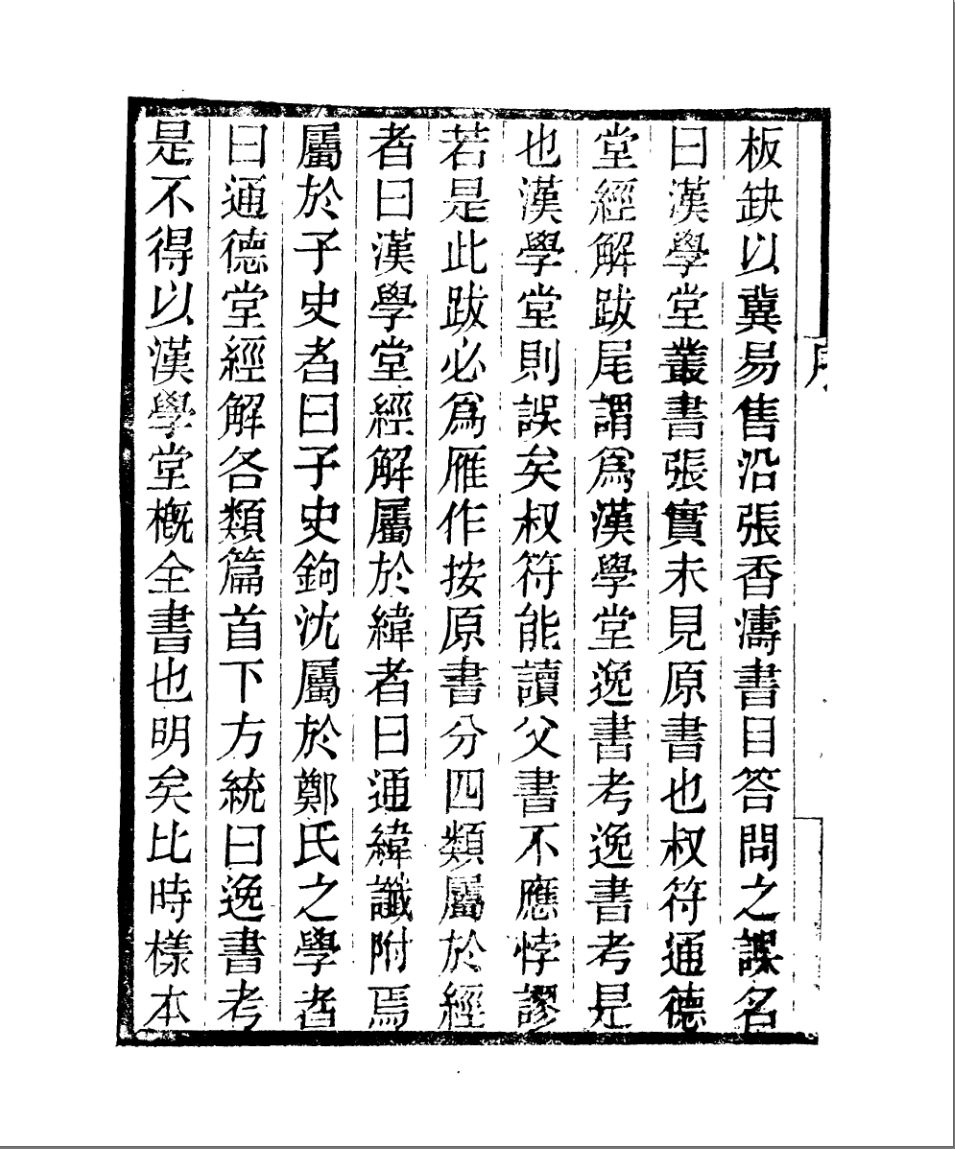 序
板缺以冀易售沿張香濤書目答問之誤名
曰漢學堂叢書張實未見原書也叔符通德
堂經解跋尾謂爲漢學堂逸書考逸書考是
也漢學堂則誤矣叔符能讀父書不應悖謬
若是此跋必爲雁作按原書分四類屬於經
者曰漢學堂經解屬於緯者曰通緯讖附焉
屬於子史者曰子史鉤沈屬於鄭氏之學者
曰通德堂經解各類篇首下方統曰逸書考
是不得以漢學堂槪全書也明矣比時樣本